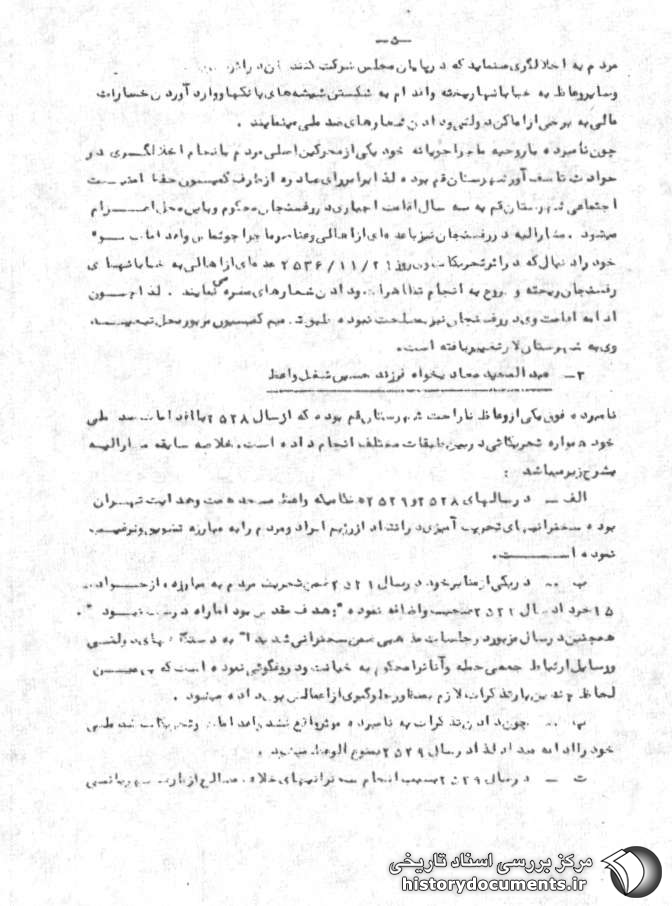 -۵-
مردم به اخلالگری مینماید که در پایان مجلس شرکت کنند
و سایر وعاظ به خیابانها ریخته و اقدام به شکستن شیشه‌های بانکها و وارد آوردن خسارات
مالی به برخی از اماکن دولتی و دادن شعارهای ضد ملی مینمایند .
چون نامبرده با روحیه ماجراجویانه خود یکی از محرکین اصلی مردم بانجام اخلالگری در و
حوادث تاسف آور شهرستان قم بوده لذا برابر رای صادره از طرف کمیسیون حفظ امنیت
اجتماعی شهرستان قم به سه سال اقامت اجباری در رفسنجان محکوم و باین محل اعزام
میشود . مشارالیه در رفسنجان نیز با عده‌ای از اهالی و عناصر ماجراجو تماس و اقدامات سوء
خود را دنبال که در اثر تحریکات وی روز ۲۵۳۶/۱۱/۲۹ عده‌ای از اهالی به خیابانهای
رفسنجان ریخته و شروع به انجام تظاهرات و دادن شعارهای مضره می نمایند . لذا چون
ادامه اقامت وی در رفسنجان نیز بمصلحت نبوده طبق تصمیم کمیسیون مزبور محل تبعید
وی به شهرستان لار تغییر یافته است .
۳- عبدالمجید معادیخواه فرزند حسین شغل واعظ
نامبرده فوق یکی از وعاظ ناراحت شهرستان قم بوده که از سال ۲۵۲۸ با اقدامات ضد ملی
خود همواره تحریکاتی در بین طبقات مختلف انجام داده است . خلاصه سابقه مشارالیه
بشرح زیر میباشد :
الف - در سالهای ۲۵۲۸ و ۲۵۲۹ که نامبرده واعظ مسجد همت و هدایت تهران
بوده سخنرانیهای تحریک آمیزی در انتقاد از رژیم ایراد و مردم را به مبارزه تشویق و ترغیب
نموده است .
ب - در یکی از منابر خود در سال ۲۵۲۹ ضمن تحریک مردم به مبارزه از حوادث
۱۵ خرداد سال ۲۵۲۲ صحبت و اضافه نموده " هدف مقدس بود اما راه درست نبود " .
همچنین در سال مزبور در جلسات مذهبی ضمن سخنرانی شدیدا" به دستگاههای دولتی
و وسایل ارتباط جمعی حمله و آنانرا محکوم به خیانت و دروغگوئی نموده است که بهمین
لحاظ چندین بار تذکرات لازم بمنظور جلوگیری از اعمالش بوی داده میشود .
پ - چون دادن تذکرات به نامبرده موثر واقع نشد و اقدامات و تحریکات ضد ملی
خود را ادامه میداد لذا در سال ۲۵۲۹ ممنوع الوعظ میشود .
ت - در سال ۲۵۲۹ بسبب انجام سخنرانیهای خلاف مصالح از طرف
مرکز بررسی اسناد تاریخی
historydocuments.ir